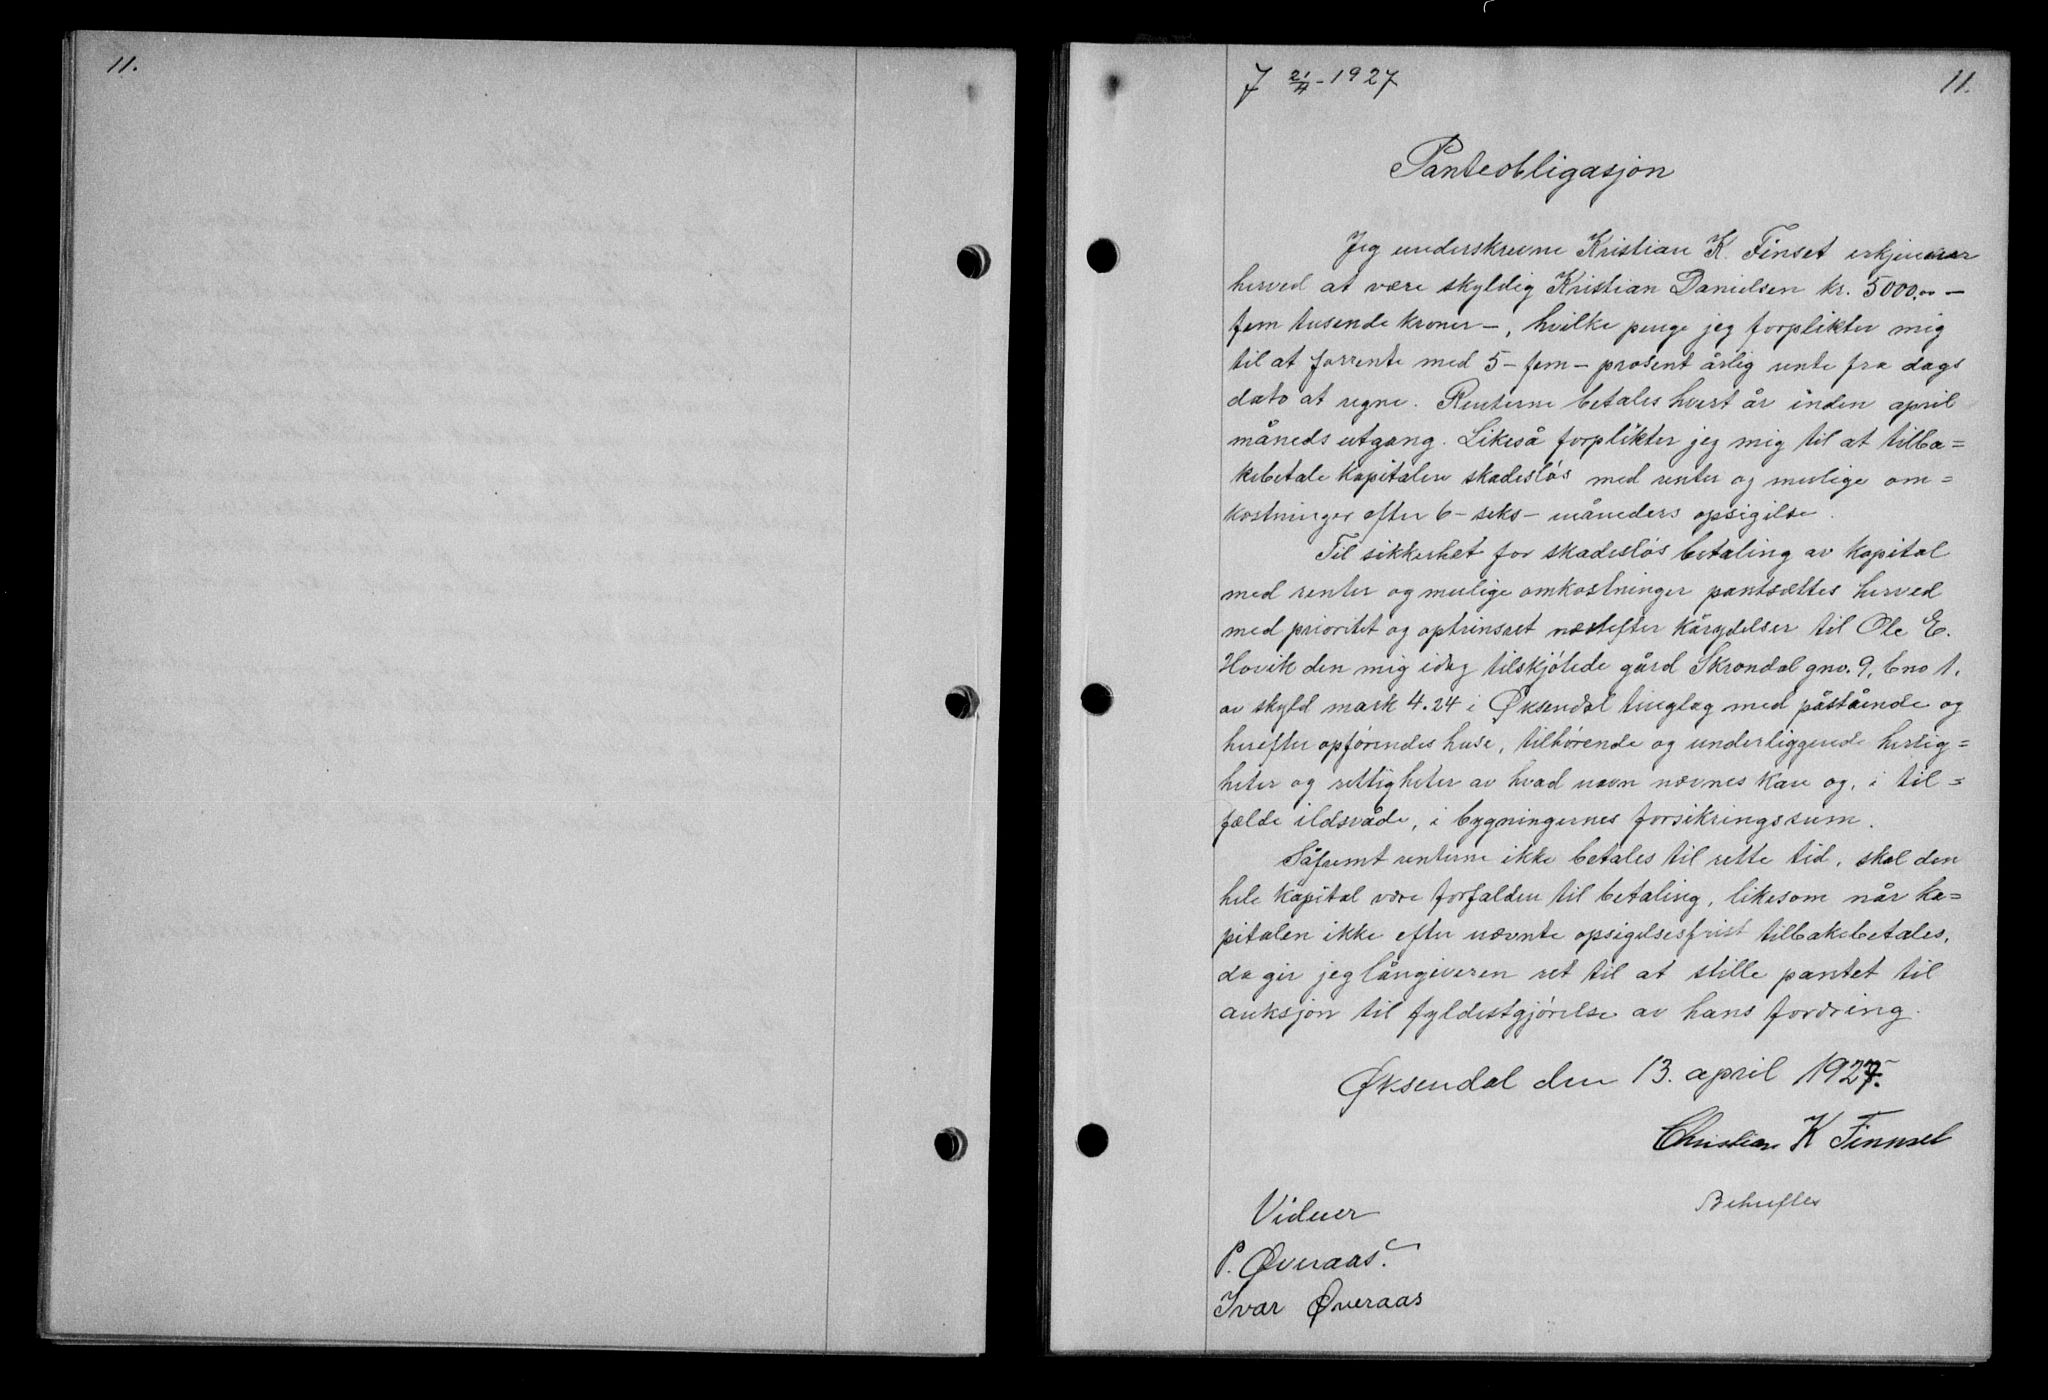 11.
7 21/4-1927
11.
Panteobligasjon
Jeg underskrevne Kristian K. Finset erkjenner
herved at være skyldig Kristian Danielsen kr. 5000,00 -
fem tusende kroner -, hvilke penge jeg forplikter mig
til at forrente med 5 - fem - prosent årlig rente fra dags
dato at regne. Renterne betales hvert år inden april
måneds utgang. Likeså forplikter jeg mig til at tilba=
kebetale kapitalen skadesløs med renter og mulige om=
kostninger efter 6 - seks - måneders opsigelse.
Til sikkerhet for skadesløs betaling av kapital
med renter og mulige omkostninger pantsættes herved
med prioritet og optrinsret næstefter kårydelser til Ole E.
Hovik den mig idag tilskjøtede gård Skrondal gno. 9, bno 1.
av skyld mark 4.24 i Øksendal tinglag med påstående og
herefter opførendes huse, tilhørende og underliggende herlig=
heter og rettigheter av hvad navn nævnes kan og, i til=
fælde ildsvåde, i bygningernes forsikringssum.
Såfremt renterne ikke betales til rette tid, skal den
hele kapital være forfalden til betaling, likesom når ka=
pitalen ikke efter nævnte opsigelsesfrist tilbakebetales,
da gir jeg långiveren ret til at stille pantet til
auksjon til fyldestgjørelse av hans fordring.
Øksendal den 13. april 1927.
Christian K Finnset
Vidner
Bekreftes
P. Øveraas.
Ivar Øveraas